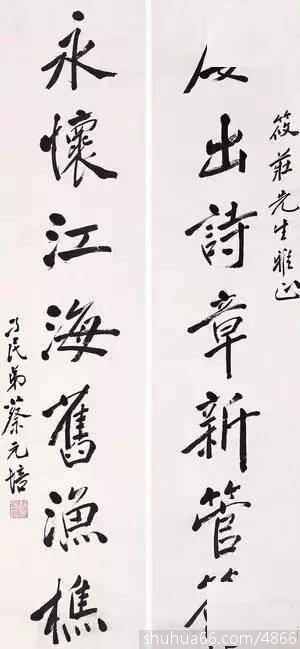 筱莊先生雅正
出詩章新管
永懷江海舊漁樵
孑民弟蔡元培
shuhua66.com/4866